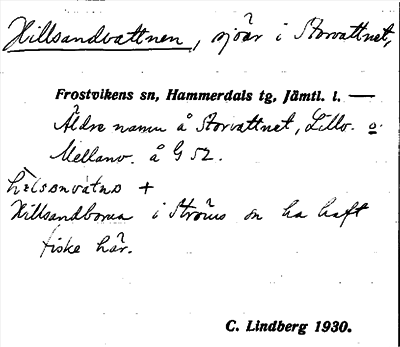 Hillsandvattnen, sjöar i Storvattnet,
Frostvikens sn, Hammerdals tg, Jämtl. l. —
Äldre namn å Storvattnet, Lillv. o.
Mellanv. å G 52.
+
Hillsandborna i Ströms sn ha haft
fiske här.
C. Lindberg 1930.